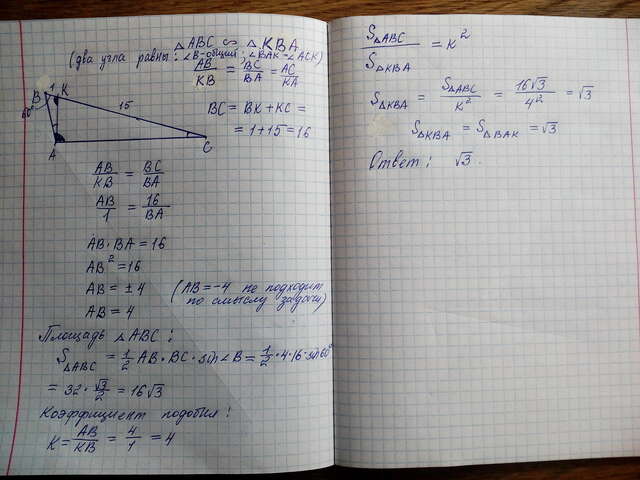 △ABC ∽ △KBA
(два угла равны: ∠B-общий; ∠BAK=∠ACK)
AB/KB = BC/BA = AC/KA
B 1 K
60°
15
A
C
BC = BK+KC =
= 1+15=16
AB/KB = BC/BA
AB/1 = 16/BA
AB·BA=16
AB²=16
AB = ±4 (AB=-4 не подходит
по смыслу задачи)
AB = 4
Площадь △ABC:
S△ABC = 1/2 AB·BC·sin∠B = 1/2·4·16·sin60°
= 32·√3/2 = 16√3
Коэффициент подобия:
K = AB/KB = 4/1 = 4
S△ABC/S△KBA = K²
S△KBA = S△ABC/K² = 16√3/4² = √3
S△KBA = S△BAK = √3
Ответ: √3.